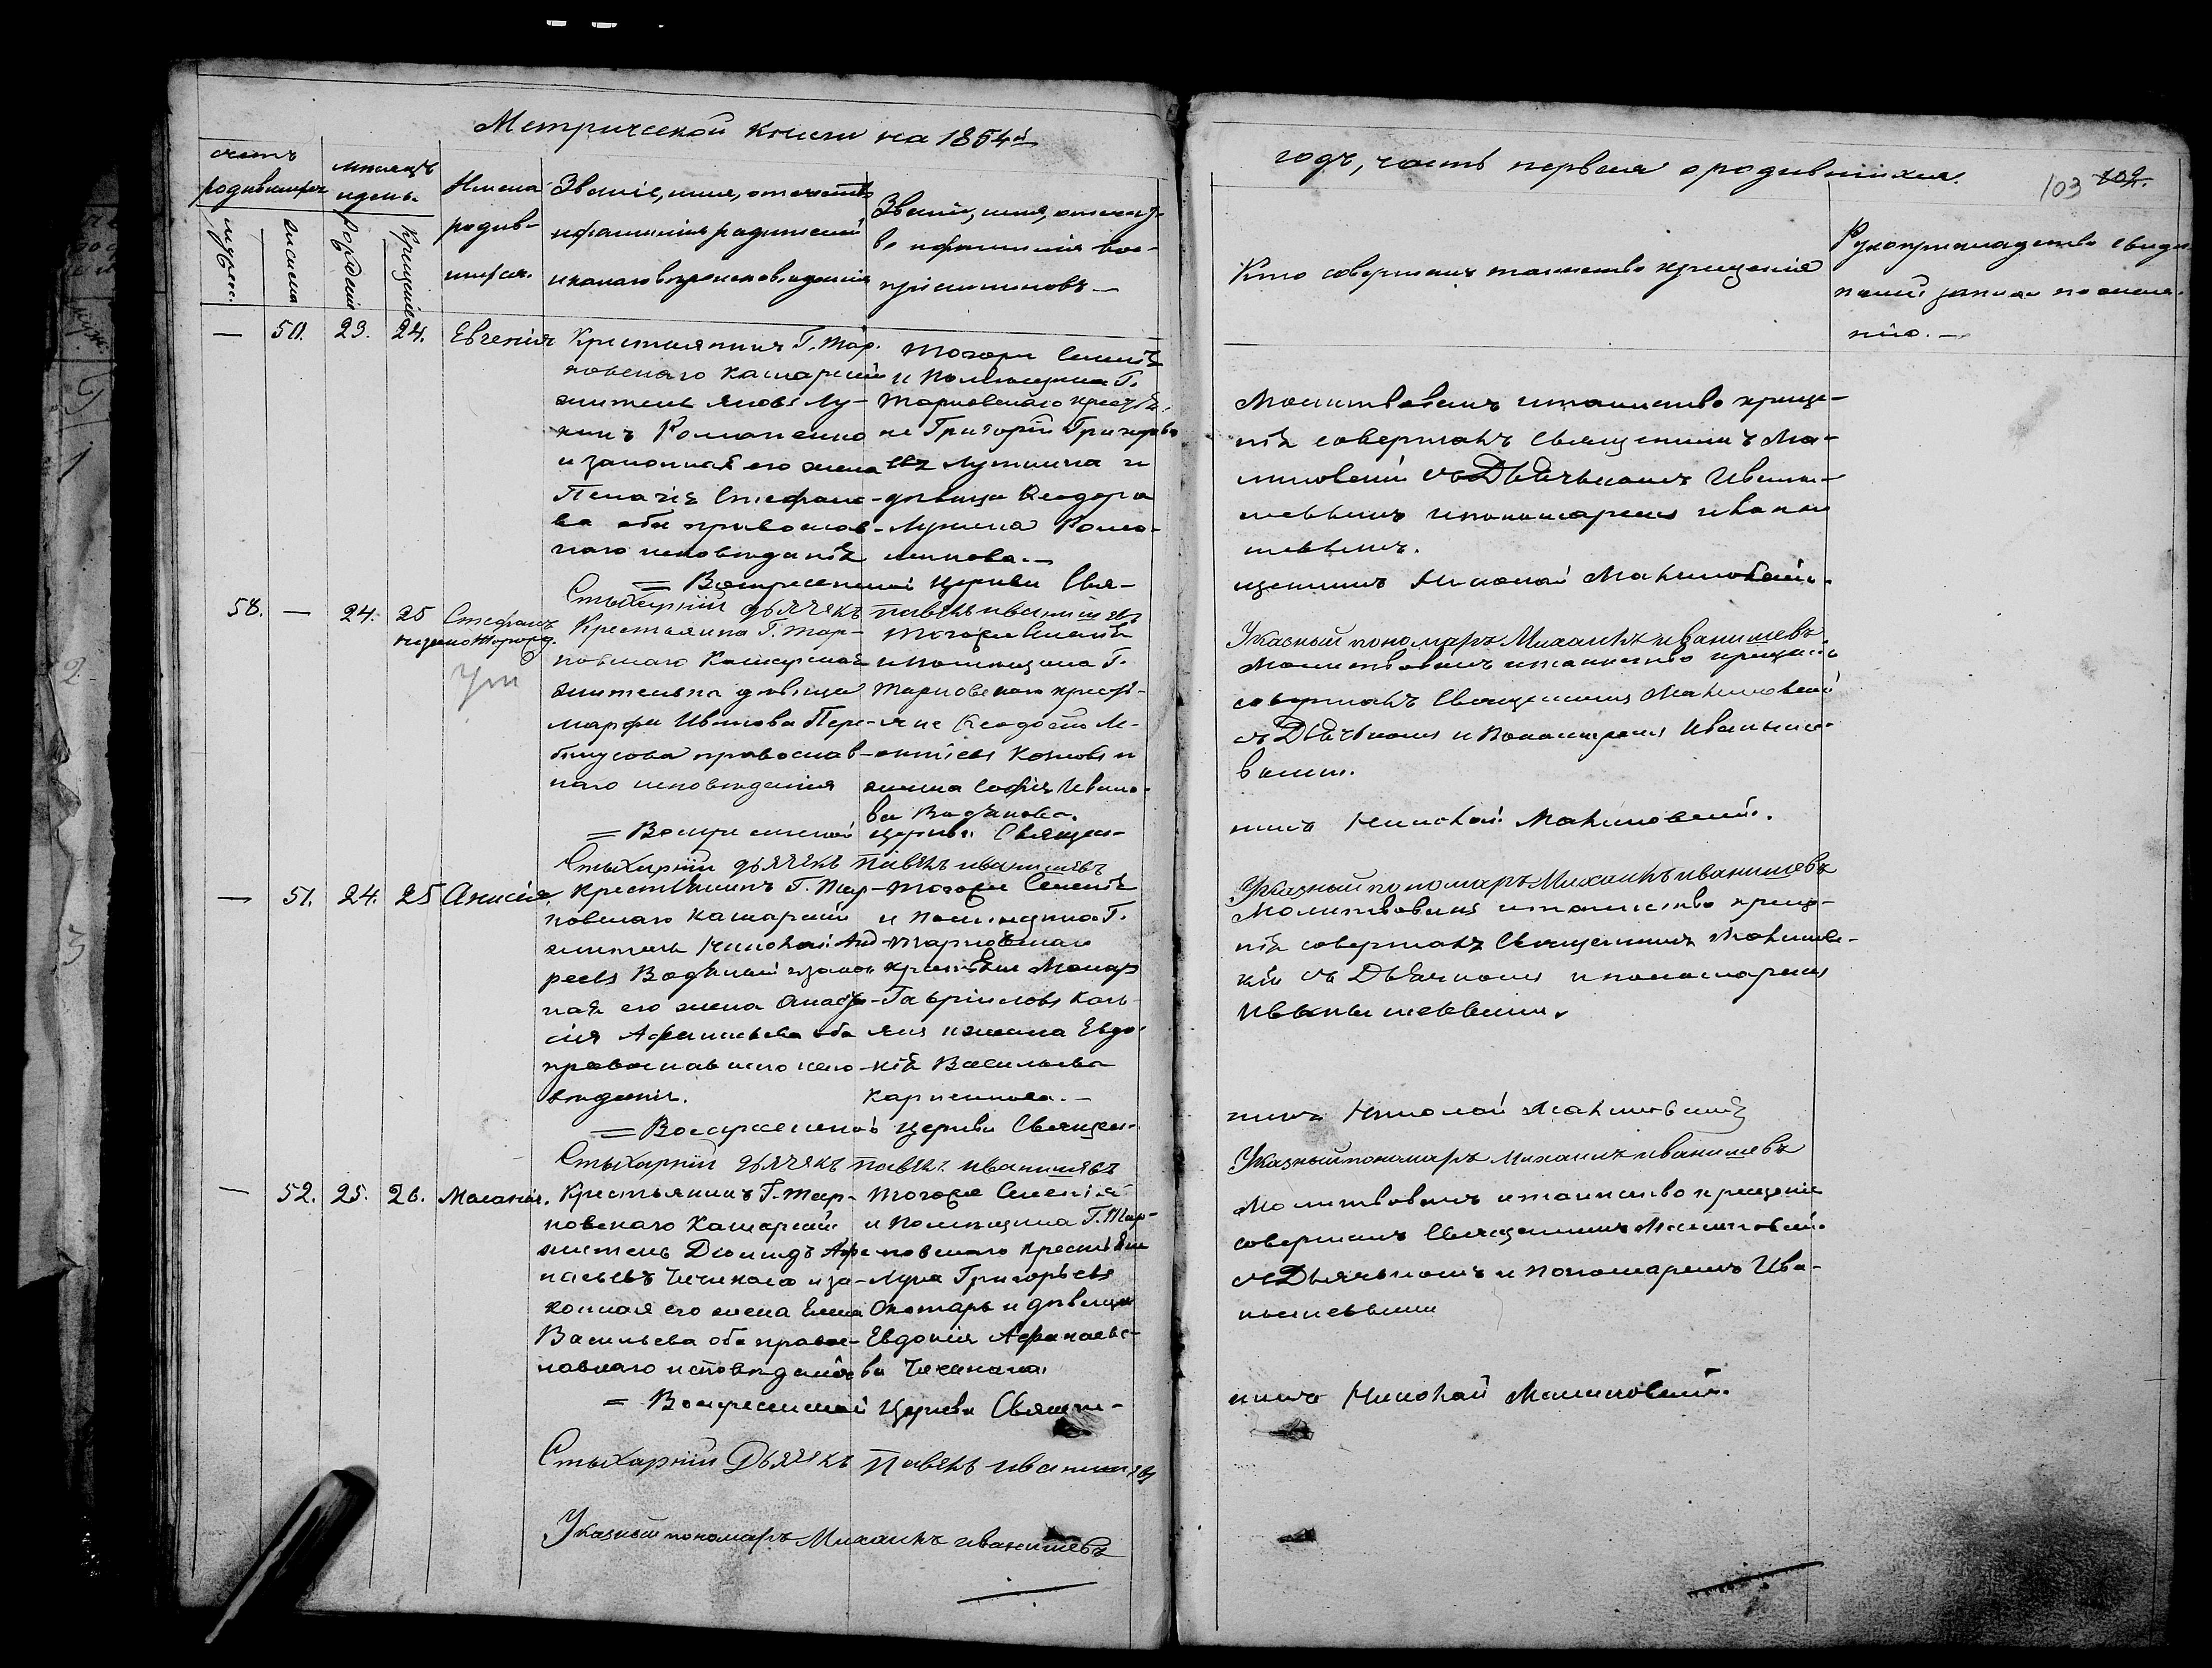 Метрической книги на 1854й
годъ, часть первая о родившихся.
103 102.
счетъ родившихся
мужеск.
женска
мѣсяцъ и день.
рожденія
крещенія
Имена родив-
шихся.
Званіе, имя, отчество
и фамилія родителей
и какого вѣроисповѣданія
Званіе, имя, отчест-
во и фамилія вос-
пріемниковъ —
Кто совершалъ таинство крещенія
Рукоприкладство свидѣ-
телей записи по жела-
нію. —
— 50. 23. 24. Евгенія
Крестьянинъ Г. Тар-
новскаго Кашарскій
житель Яковъ Лу-
кинъ Романенко
и законная его жена
Пелагія Стефано-
ва оба православ-
наго исповѣданія
Тогоже
и помѣщика Г.
Тарновскаго крестья-
не Григорій Григорьевъ
и
дѣвица Феодора
Лукина Рома-
ненкова. —
Молитвовалъ и таинство креще-
нія совершалъ Священникъ Ма-
линовскій съ Дьячькомъ Ивани-
шевымъ и пономаремъ Ивани
шевымъ.
= Воскресенской Церкви Свя-
щенникъ Николай Малиновскій.
Стыхарній дьячекъ Павелъ Иванишевъ
Указный пономаръ Михаилъ Иванишевъ
58. — 24. 25 Стефанъ
незаконорожд.
Ум
Крестьянина Г. Тар-
новскаго Кашарская
жительна дѣвица
Марфа Иванова Пере-
бинусова православ-
наго исповѣданія
Тогоже
и помѣщика Г.
Тарновскаго кресть-
яне Феодосій Ле-
онтіевъ Козловъ и
жинка Софія Ивано-
ва Водянова.
Молитвовалъ и таинство крещенія
совершалъ Священникъ Малиновскій
съ Дьячькомъ и Пономаремъ Иванише-
выми.
= Воскресенской Церкви Священ-
никъ Николай Малиновскій.
Стыхарній дьячекъ Павелъ Иванишевъ
Указный пономаръ Михаилъ Иванишевъ
— 51. 24. 25 Анисія.
Крестьянинъ Г. Тар-
новскаго Кашарскій
житель Николай Анд-
реевъ Водяный и закон
ная его жена Анаста-
сія Афанасьева оба
православнаго испо-
вѣданія.
Тогоже
и помѣщика Г.
Тарновскаго
крестьяне Макаръ
Гавріиловъ Каль-
янъ и жинка Евдо-
кія Васильева
Карпенкова. —
Молитвовалъ и таинство креще-
нія совершалъ Священникъ Малинов-
кій съ Дьячкомъ и пономаремъ
Иванышевыми.
= Воскресенской Церкви Священ-
никъ Николай Малиновскій
Стыхарній дьячекъ Павелъ Иванишевъ
Указный пономаръ Михаилъ Иванишевъ
— 52. 25. 26. Маланія.
Крестьянинъ Г. Тар-
новскаго Кашарскій
житель Діомидъ Афа
насьевъ Чечикало и за-
конная его жена Елена
Васильева оба правос-
лавнаго исповѣданія
Тогоже
и помѣщика Г. Тар-
новскаго крестьяне
Лука Григорьевъ
и дѣвица
Евдокія Афанасье-
ва
Молитвовалъ и таинство крещенія
совершалъ Священникъ Малиновскій
съ Дьячькомъ и пономаремъ Ива-
нышевыми
= Воскресенской Церкви Священ-
никъ Николай Малиновскій.
Стыхарній Дьячекъ Павелъ Иванишевъ
Указный пономаръ Михаилъ Иванишевъ